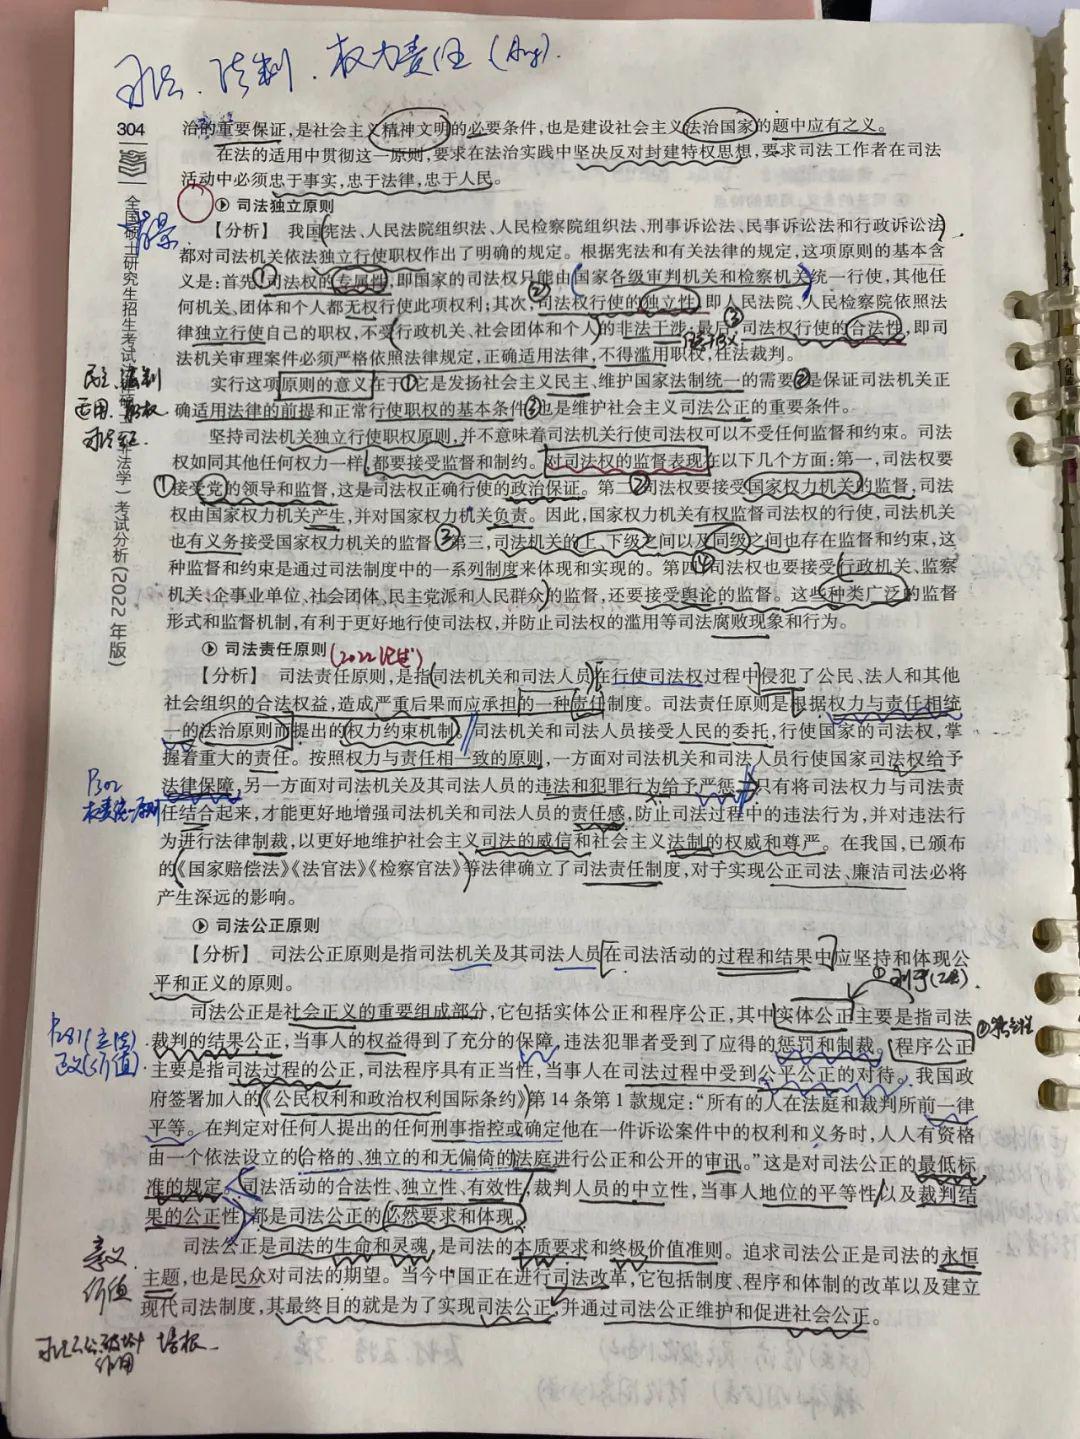 司法.法制.权力责任
304
治的重要保证,是社会主义精神文明的必要条件,也是建设社会主义法治国家的题中应有之义。
在法的适用中贯彻这一原则,要求在法治实践中坚决反对封建特权思想,要求司法工作者在司法
活动中必须忠于事实,忠于法律,忠于人民。
司法独立原则
【分析】 我国宪法、人民法院组织法、人民检察院组织法、刑事诉讼法、民事诉讼法和行政诉讼法
都对司法机关依法独立行使职权作出了明确的规定。根据宪法和有关法律的规定,这项原则的基本含
义是:首先,①司法权的专属性,即国家的司法权只能由国家各级审判机关和检察机关统一行使,其他任
何机关、团体和个人都无权行使此项权利;其次,②司法权行使的独立性,即人民法院、人民检察院依照法
律独立行使自己的职权,不受行政机关、社会团体和个人的非法干涉;最后,③司法权行使的合法性,即司
法机关审理案件必须严格依照法律规定,正确适用法律,不得滥用职权,枉法裁判。
实行这项原则的意义在于①它是发扬社会主义民主、维护国家法制统一的需要②是保证司法机关正
确适用法律的前提和正常行使职权的基本条件③也是维护社会主义司法公正的重要条件。
坚持司法机关独立行使职权原则,并不意味着司法机关行使司法权可以不受任何监督和约束。司法
权如同其他任何权力一样,都要接受监督和制约。对司法权的监督表现在以下几个方面:第一,司法权要
①接受党的领导和监督,这是司法权正确行使的政治保证。第二②司法权要接受国家权力机关的监督,司法
权由国家权力机关产生,并对国家权力机关负责。因此,国家权力机关有权监督司法权的行使,司法机关
也有义务接受国家权力机关的监督③第三,司法机关的上、下级之间以及同级之间也存在监督和约束,这
种监督和约束是通过司法制度中的一系列制度来体现和实现的。第四④司法权也要接受行政机关、监察
机关、企事业单位、社会团体、民主党派和人民群众的监督,还要接受舆论的监督。这些种类广泛的监督
形式和监督机制,有利于更好地行使司法权,并防止司法权的滥用等司法腐败现象和行为。
司法责任原则
【分析】 司法责任原则,是指司法机关和司法人员在行使司法权过程中侵犯了公民、法人和其他
社会组织的合法权益,造成严重后果而应承担的一种责任制度。司法责任原则是根据权力与责任相统
一的法治原则而提出的权力约束机制。司法机关和司法人员接受人民的委托,行使国家的司法权,掌
握着重大的责任。按照权力与责任相一致的原则,一方面对司法机关和司法人员行使国家司法权给予
法律保障,另一方面对司法机关及其司法人员的违法和犯罪行为给予严惩。只有将司法权力与司法责
任结合起来,才能更好地增强司法机关和司法人员的责任感,防止司法过程中的违法行为,并对违法行
为进行法律制裁,以更好地维护社会主义司法的威信和社会主义法制的权威和尊严。在我国,已颁布
的《国家赔偿法》《法官法》《检察官法》等法律确立了司法责任制度,对于实现公正司法、廉洁司法必将
产生深远的影响。
司法公正原则
【分析】 司法公正原则是指司法机关及其司法人员在司法活动的过程和结果中应坚持和体现公
平和正义的原则。
司法公正是社会正义的重要组成部分,它包括实体公正和程序公正,其中实体公正主要是指司法
裁判的结果公正,当事人的权益得到了充分的保障,违法犯罪者受到了应得的惩罚和制裁。程序公正
主要是指司法过程的公正,司法程序具有正当性,当事人在司法过程中受到公平公正的对待。我国政
府签署加入的《公民权利和政治权利国际条约》第14条第1款规定:“所有的人在法庭和裁判所前一律
平等。在判定对任何人提出的任何刑事指控或确定他在一件诉讼案件中的权利和义务时,人人有资格
由一个依法设立的合格的、独立的和无偏倚的法庭进行公正和公开的审讯。”这是对司法公正的最低标
准的规定。司法活动的合法性、独立性、有效性,裁判人员的中立性,当事人地位的平等性,以及裁判结
果的公正性,都是司法公正的必然要求和体现。
司法公正是司法的生命和灵魂,是司法的本质要求和终极价值准则。追求司法公正是司法的永恒
主题,也是民众对司法的期望。当今中国正在进行司法改革,它包括制度、程序和体制的改革以及建立
现代司法制度,其最终目的就是为了实现司法公正,并通过司法公正维护和促进社会公正。
背景
民主.法制
适用.职权
司法公正.
P302
权责统一原则
P281(立法)
正义(价值)
意义
价值
作用